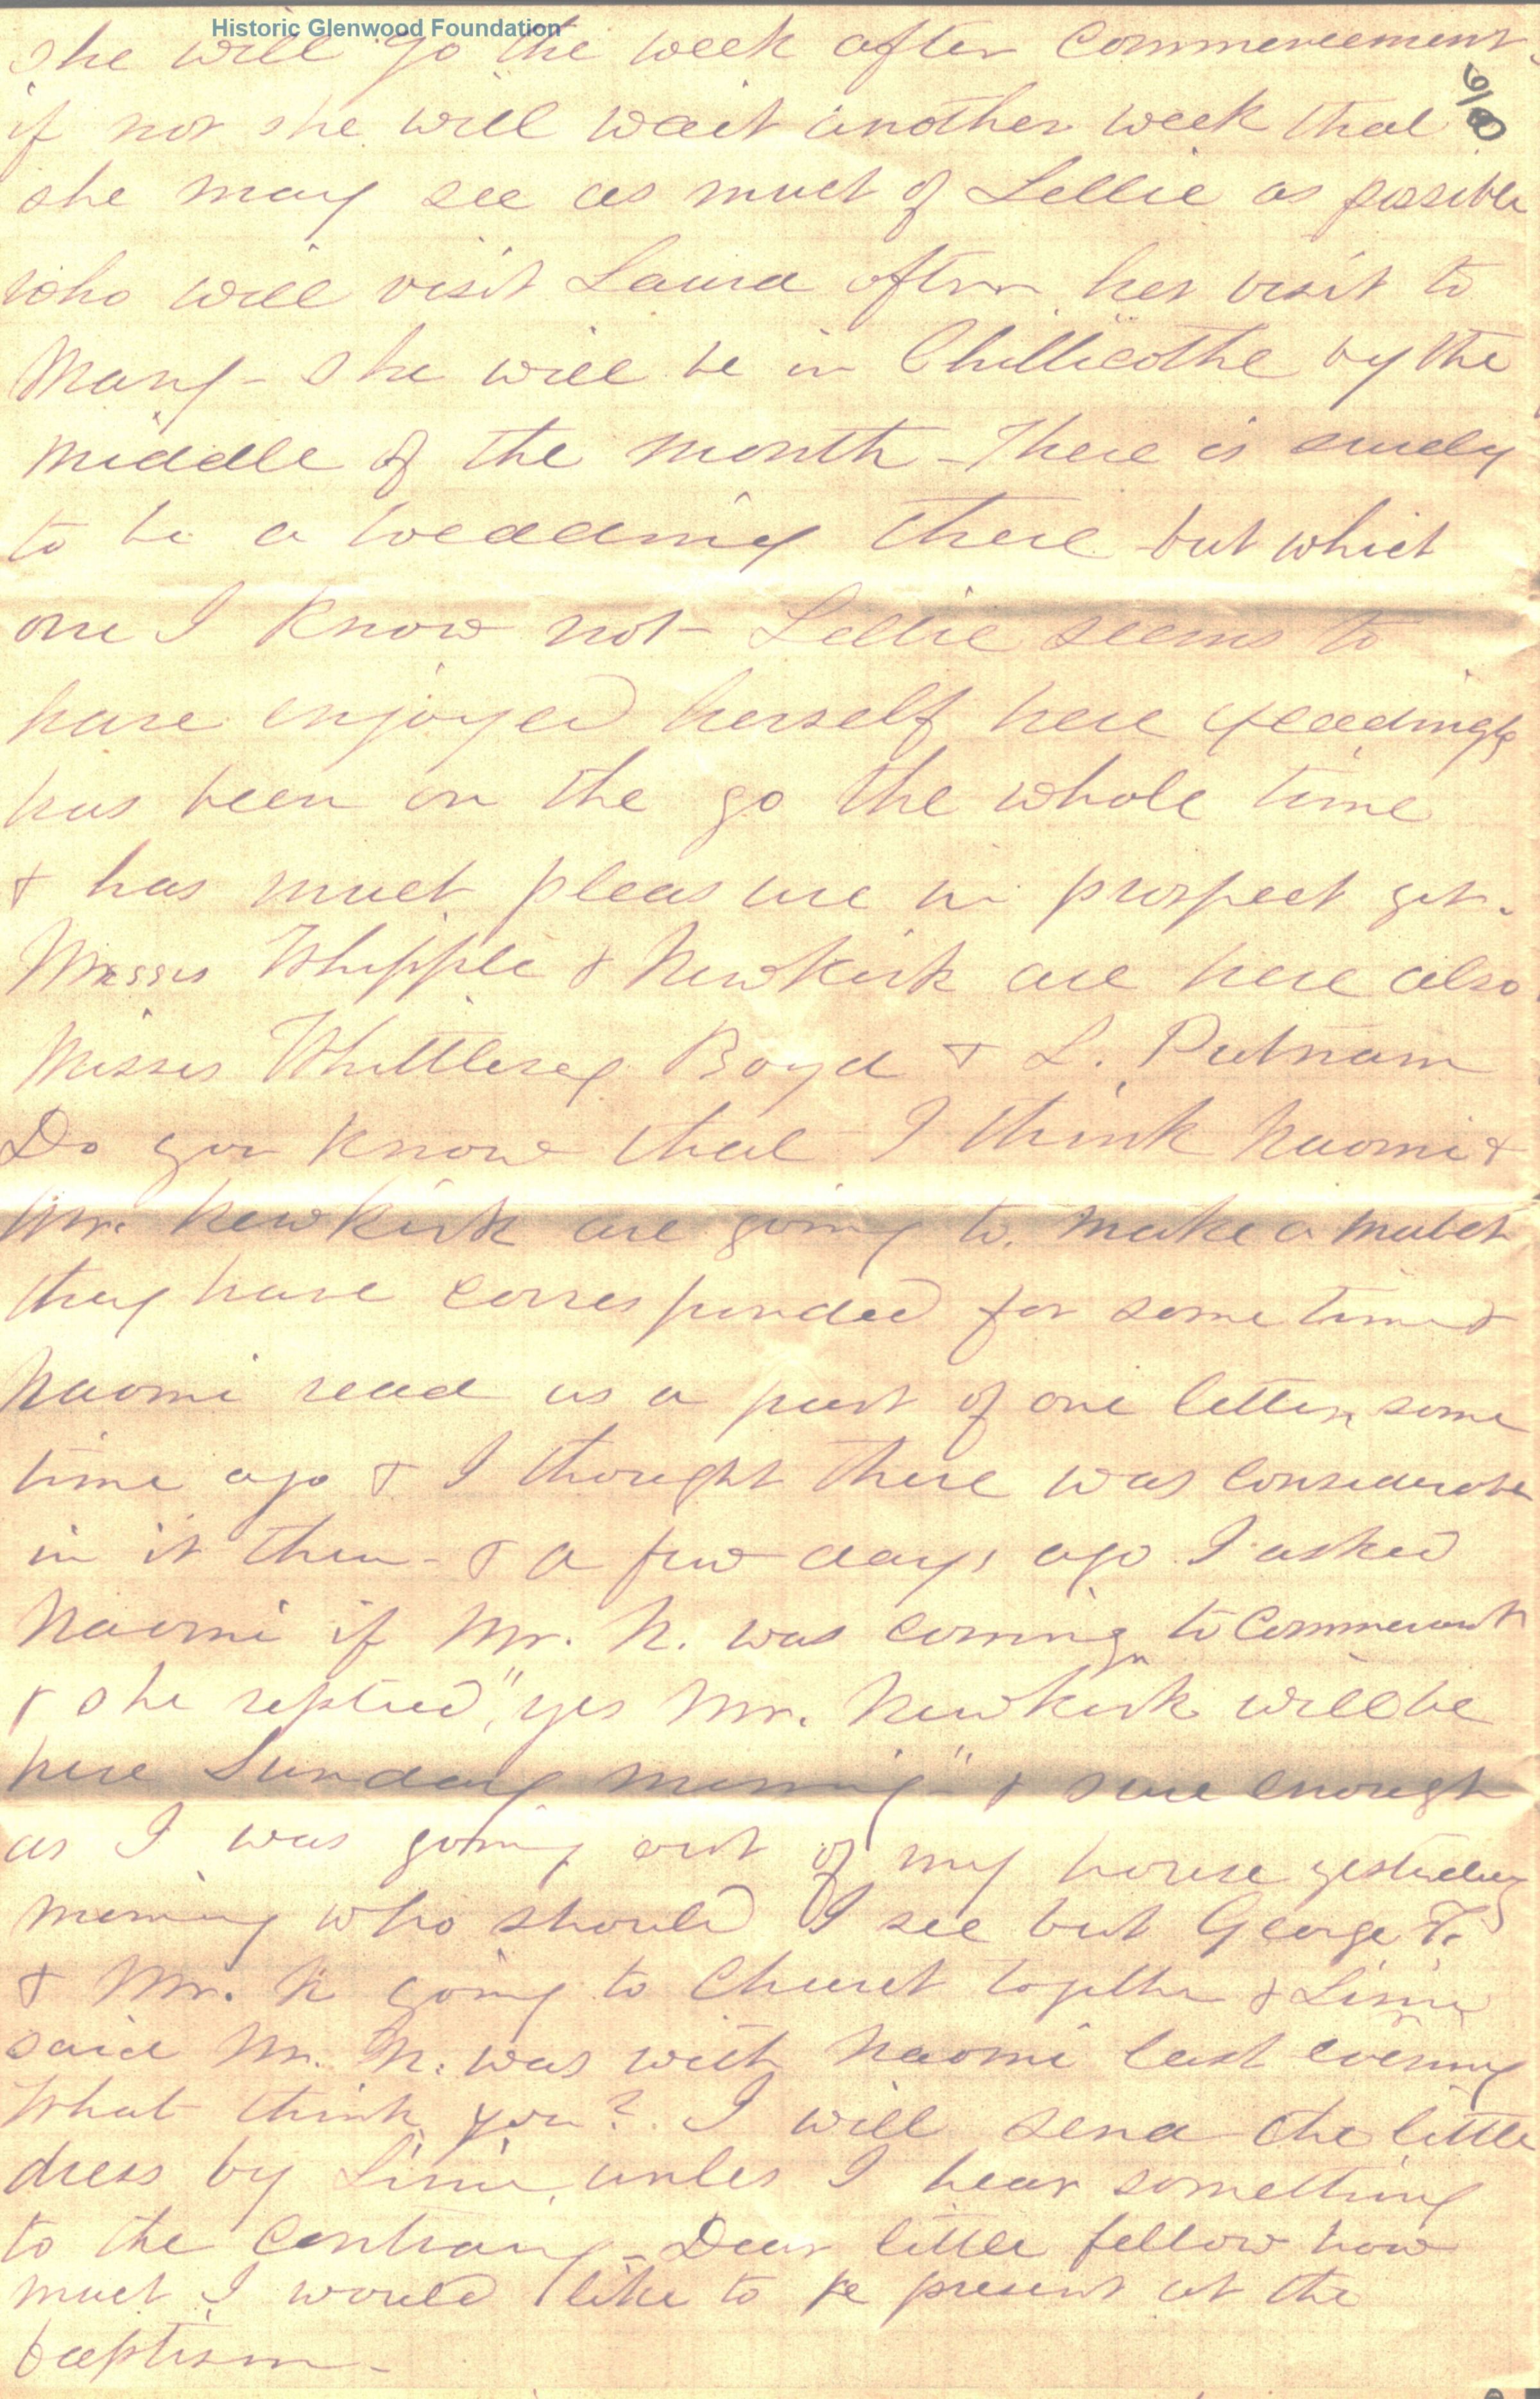 Historic Glenwood Foundation
she will go the week after Commencement
if not she will wait another week that
she may see as much of Lellie as possible
who will visit Laura after her visit to
Mary - She will be in Chillicothe by the
middle of the month - There is surely
to be a wedding there but which
one I know not - Lellie seems to
have enjoyed herself here
has been on the go the whole time
& has much pleasure in prospect yet.
Messrs Whipple & Newkirk are here also
Misses Whittlesey Boyd & L. Putnam
Do you know that I think Naomi &
Mr. Newkirk are going to make a match
they have corresponded for some time &
Naomi read us a part of one letter, some
time ago & I thought there was considerable
in it then - & a few days ago I asked
Naomi if Mr. N. was coming to
& she replied, "yes Mr. Newkirk will be
here Sunday morning" & sure enough
as I was going out of my house yesterday
morning who should I see but George T.
& Mr. N going to Church together &
said Mr. N. was with Naomi last evening
What think you? I will send the little
dress by unless I hear something
to the contrary - Dear little fellow how
much I would like to be present at the
baptism -